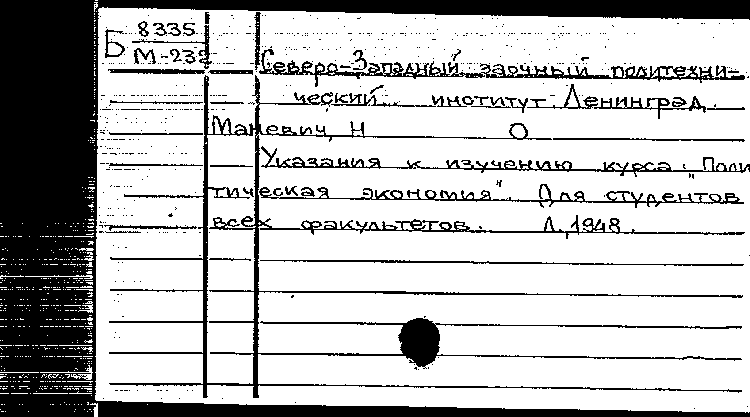 Б 8335
М-232
Северо-Западный заочный политехни-
ческий институт. Ленинград.
Маневич, Н О
Указания к изучению курса "Поли
тическая экономия". Для студентов
всех факультетов. Л., 1948.